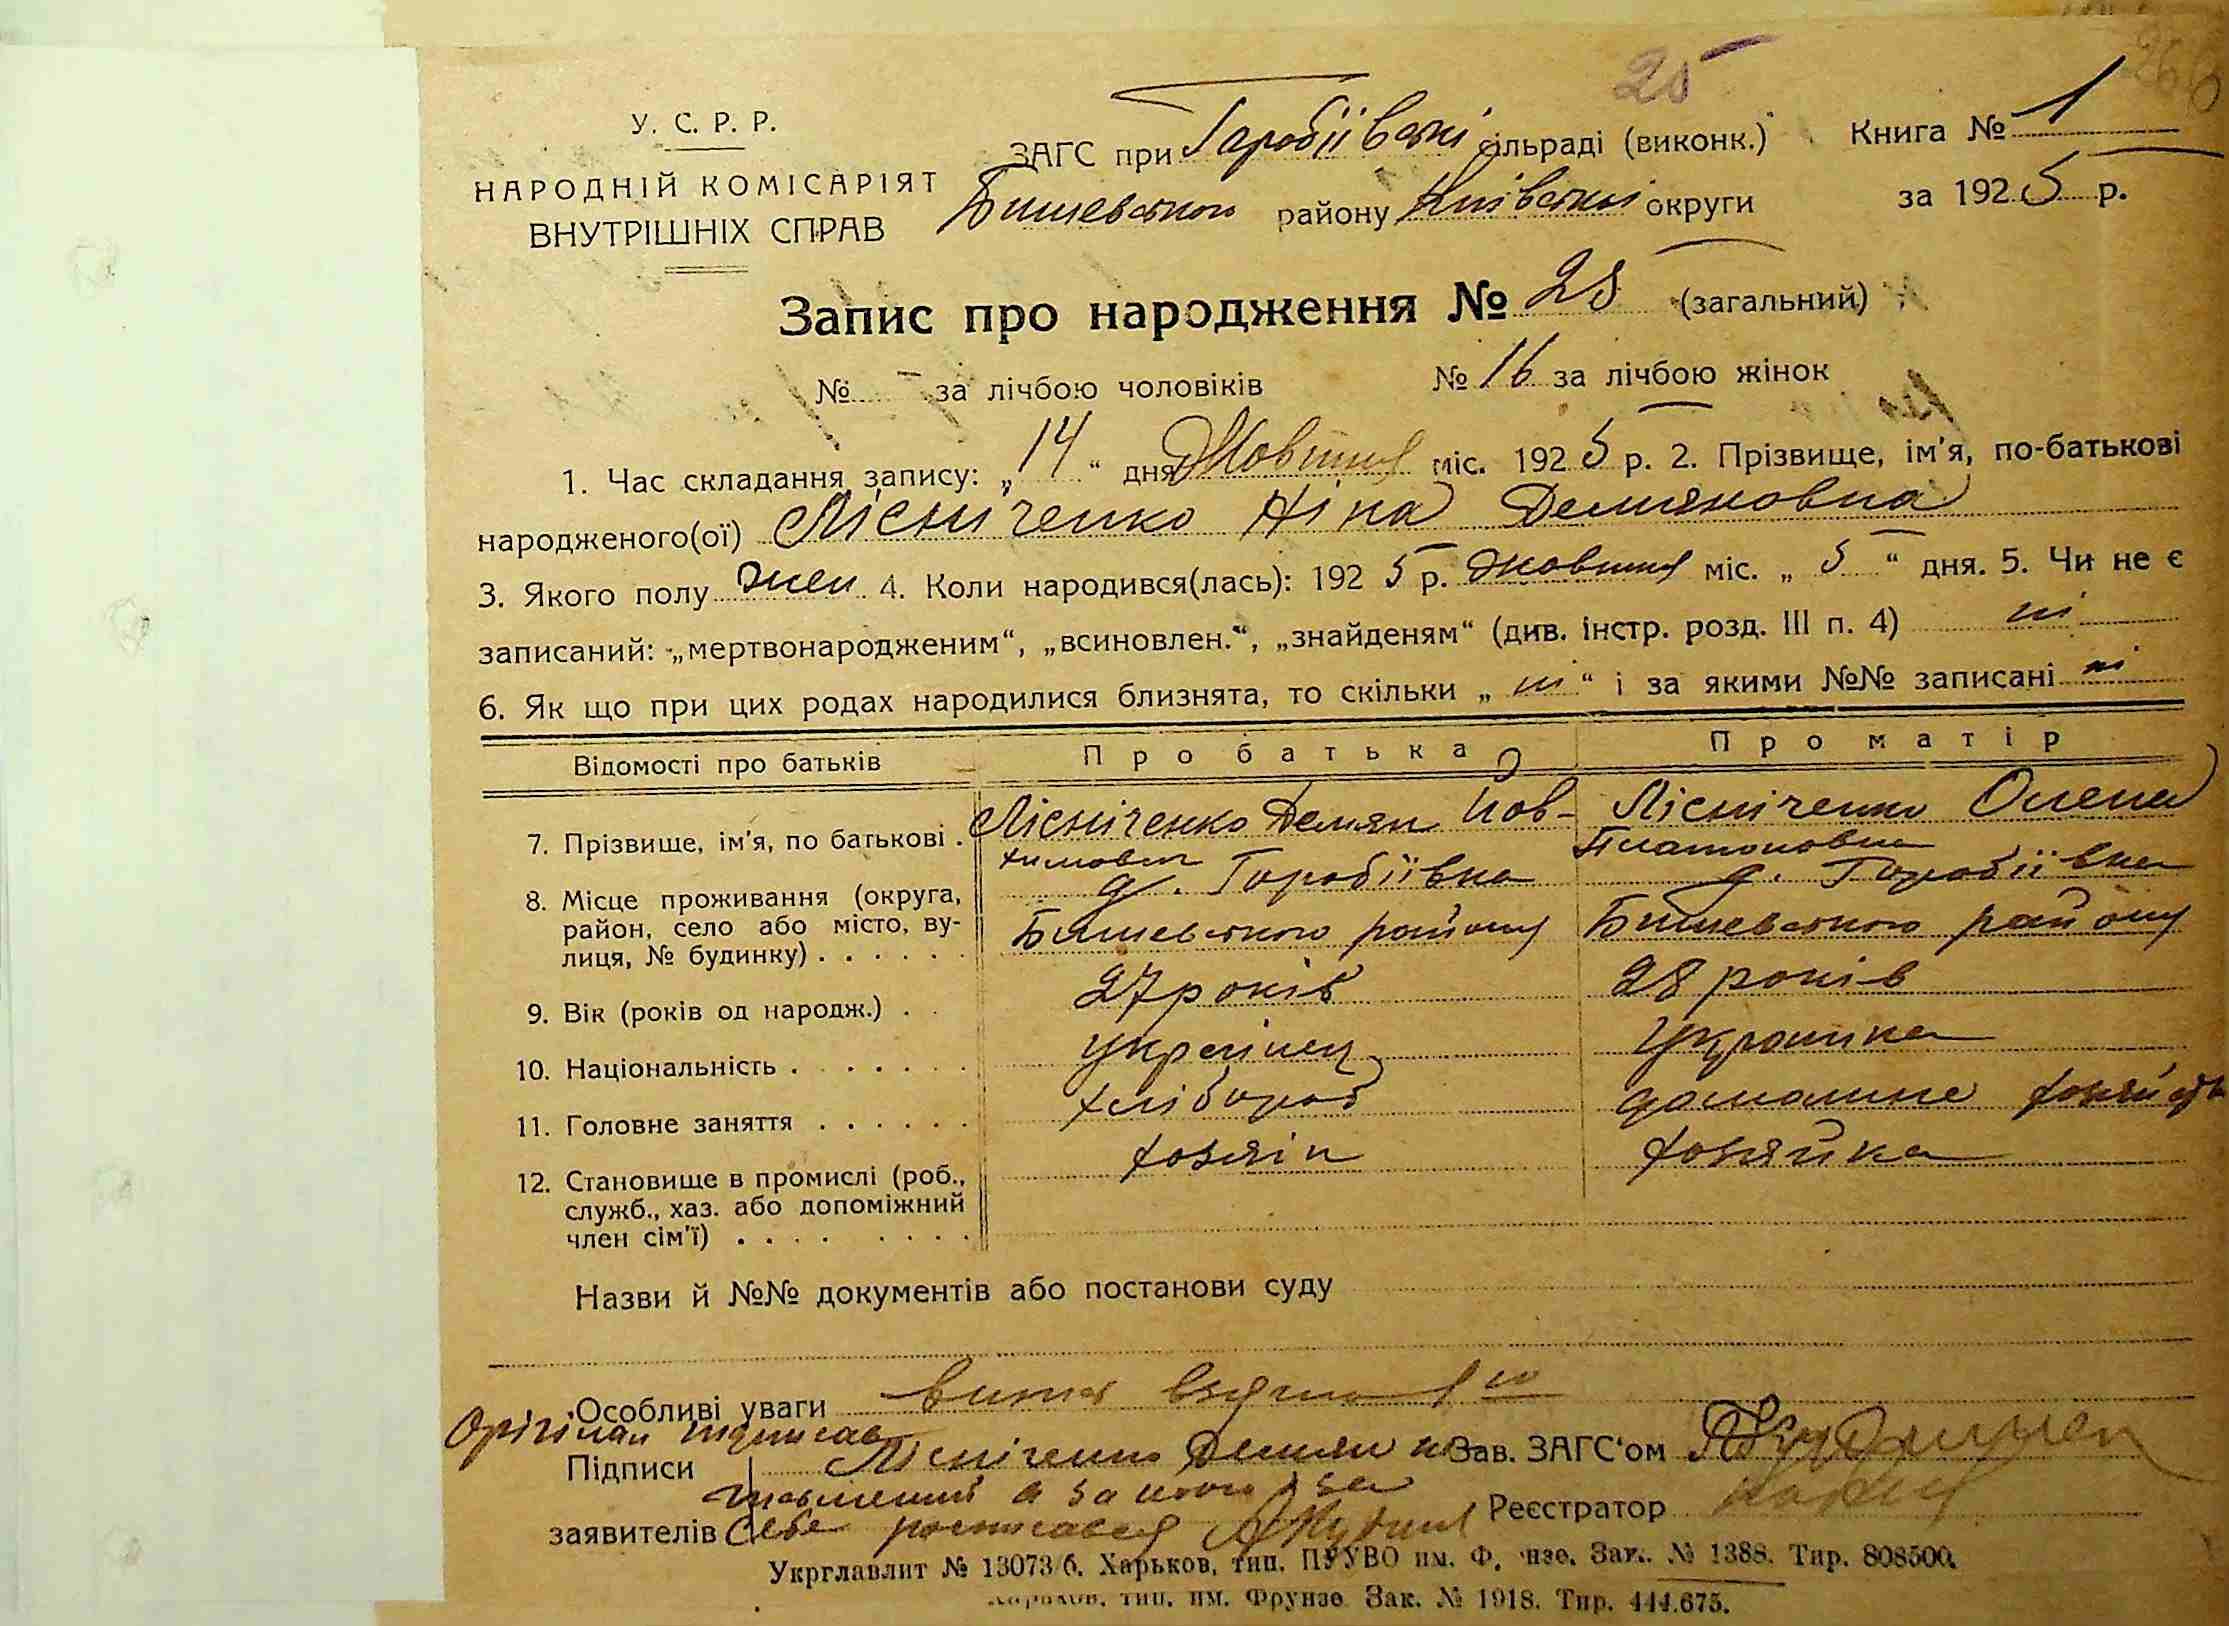 25
266
У. С. Р. Р.
НАРОДНІЙ КОМІСАРІЯТ
ВНУТРІШНІХ СПРАВ
ЗАГС при Горобіївскі сільраді (виконк.) Книга № 1
Бишевського району Київської округи за 1925 р.
Запис про народження № 25 (загальний)
№ - за лічбою чоловіків № 16 за лічбою жінок
1. Час складання запису: „14“ дня Жовтня міс. 1925 р. 2. Прізвище, ім'я, по-батькові
народженого(ої) Лісніченко Ніна Демяновна
3. Якого полу жен 4. Коли народився(лась): 1925 р. жовтня міс. „5“ дня. 5. Чи не є
записаний: „мертвонародженим“, „всиновлен.“, „знайденям“ (див. інстр. розд. III п. 4) ні
6. Як що при цих родах народилися близнята, то скільки „ні“ і за якими №№ записані ні
Відомості про батьків Про батька Про матір
7. Прізвище, ім'я, по батькові . Лісніченко Демян Йов- Лісніченко Олена
тимович Платоновна
8. Місце проживання (округа, д. Горобіївка д. Горобіївка
район, село або місто, ву- Бишевського району Бишевського району
лиця, № будинку) . . . . . .
9. Вік (років од народж.) . . 27 років 28 років
10. Національність . . . . . . . українец украинка
11. Головне заняття . . . . . . хлібороб домашне хозяйств
12. Становище в промислі (роб., хозяін хозяйка
служб., хаз. або допоміжний
член сім'ї) . . . . . . . .
Назви й №№ документів або постанови суду
Особливі уваги
Орігінал підписав
Підписи Лісніченко Демян Зав. ЗАГС'ом
а за його і за
заявителів себе росписався Реєстратор
Укрглавлит № 13073/б. Харьков, тип. ПУУВО им. Ф. нзе. Зак. № 1388. Тир. 808500.
Харьков, тип. им. Фрунзе Зак. № 1918. Тир. 444.675.